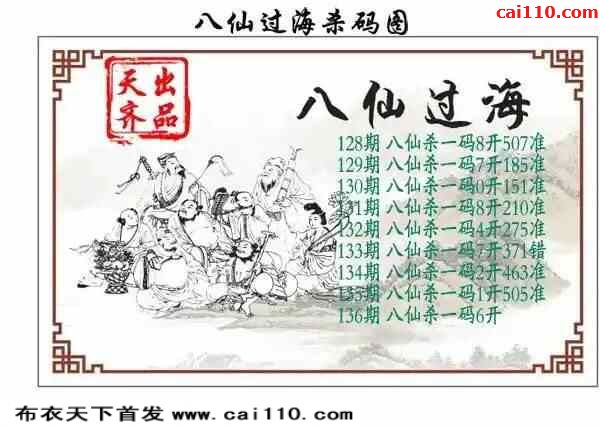 八仙过海杀码图
cai110.com
天齐出品
八仙过海
128期 八仙杀一码8开507准
129期 八仙杀一码7开185准
130期 八仙杀一码0开151准
131期 八仙杀一码8开210准
132期 八仙杀一码4开275准
133期 八仙杀一码7开371错
134期 八仙杀一码2开463准
135期 八仙杀一码1开505准
136期 八仙杀一码6开
布衣天下首发 www.cai110.com